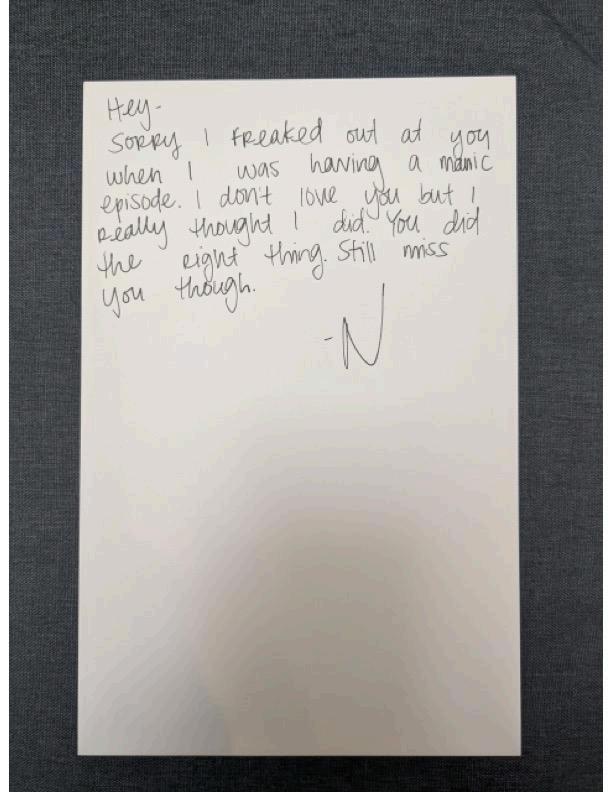 Hey-
Sorry I freaked out at you
when I was having a manic
episode. I don't love you but I
really thought I did. You did
the right thing. Still miss
you though.
-N